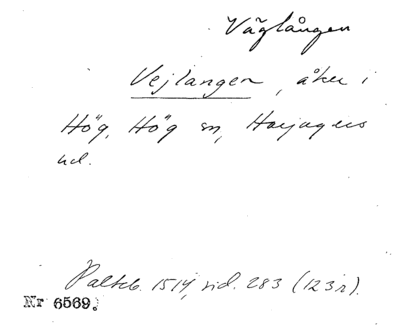 Väglången
Vejlangen, åker i
Hög, Hög sn, Harjagers
hd.
Palteb. 1514, sid. 283 (123r).
Nr 6569.